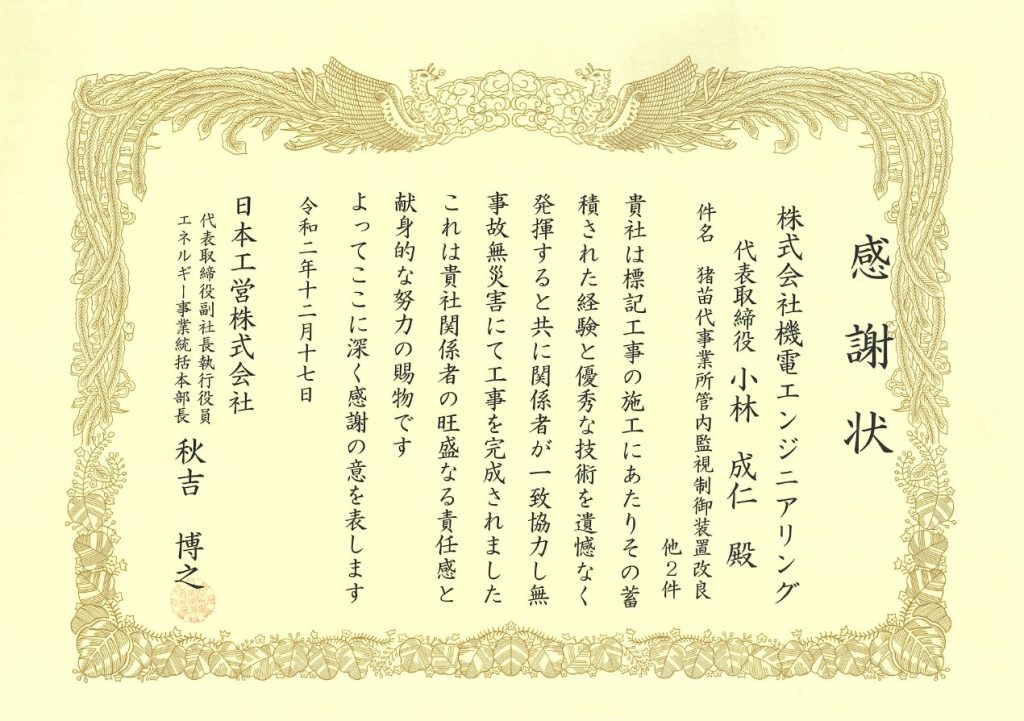 感謝状
株式会社機電エンジニアリング
代表取締役 小林 成仁 殿
件名 猪苗代事業所管内監視制御装置改良
他2件
貴社は標記工事の施工にあたりその蓄
積された経験と優秀な技術を遺憾なく
発揮すると共に関係者が一致協力し無
事故無災害にて工事を完成されました
これは貴社関係者の旺盛なる責任感と
献身的な努力の賜物です
よってここに深く感謝の意を表します
令和二年十二月十七日
日本工営株式会社
代表取締役副社長執行役員
エネルギー事業統括本部長
秋吉 博之